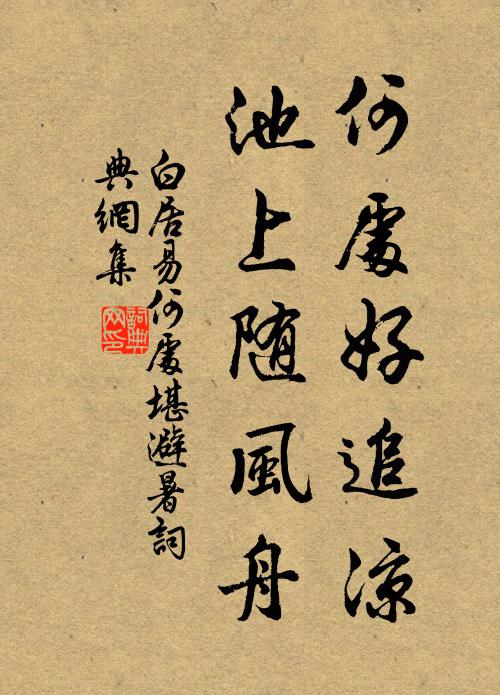 何處好追涼
池上随風舟
白居易何處堪避暑詞
典網集
詞典
网印